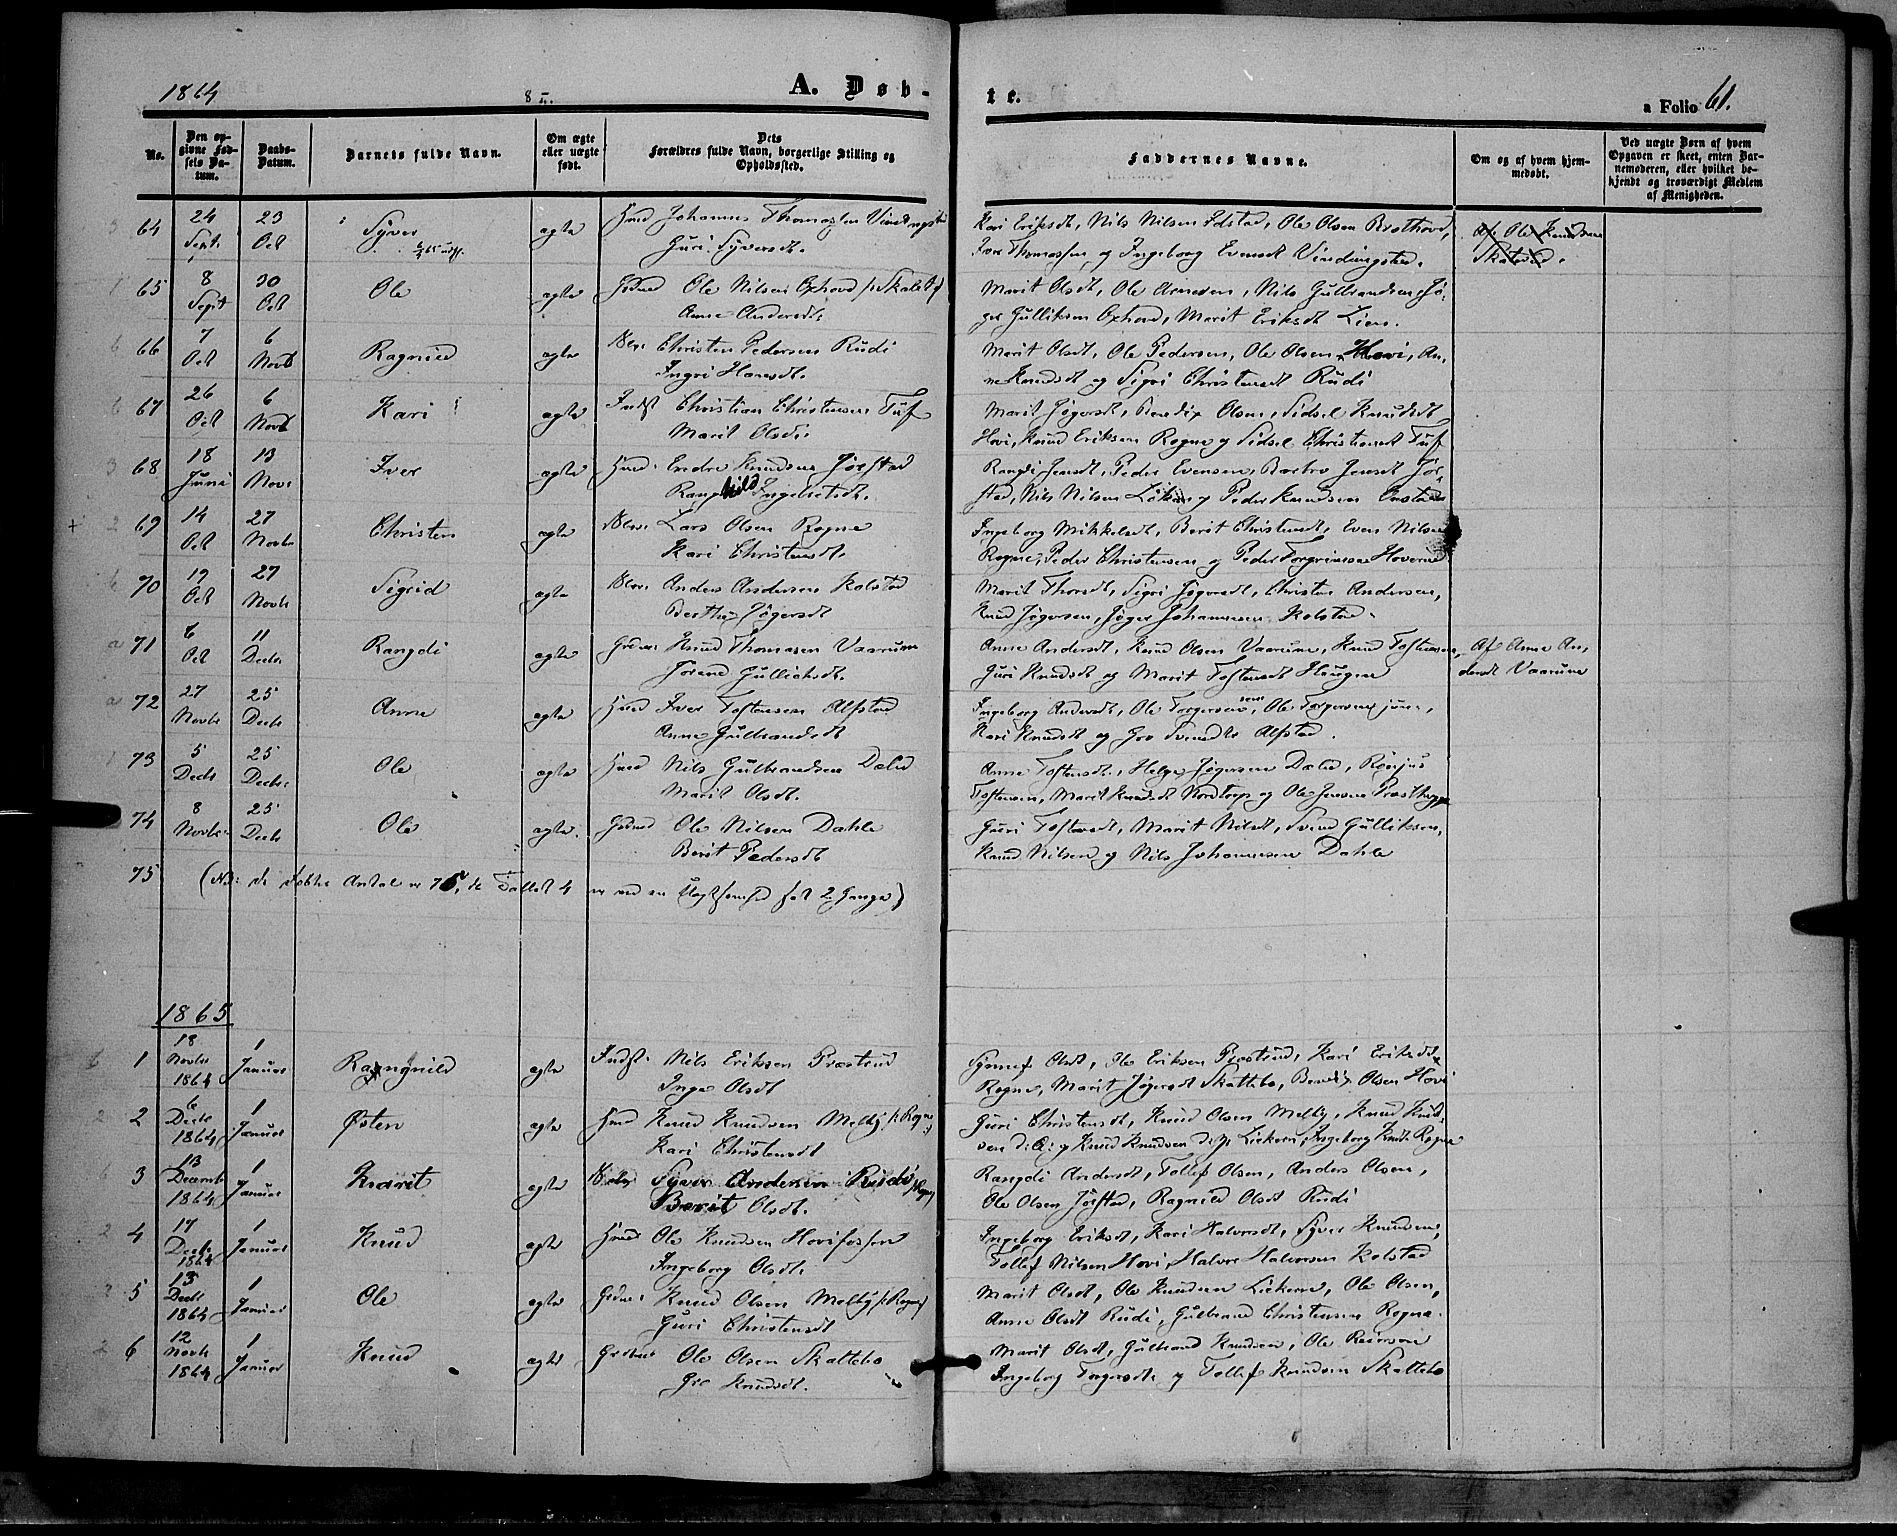 1864
8
A. Døb-
te.
a Folio 61.
No.
Den op-
givne Fød-
sels Da-
tum.
Daabs-
Datum.
Barnets fulde Navn.
Om ægte
eller uægte
født.
Dets
Forældres fulde Navn, borgerlige Stilling og
Opholdssted.
Faddernes Navne.
Om og af hvem hjem-
medøbt.
Ved uægte Børn af hvem
Opgaven er skeet, enten Bar-
nemoderen, eller hvilket be-
kjendt og troværdigt Medlem
af Menigheden.
64 24 Sept. 23 Oct Syver ægte Johannes Thomassen
Guri Syversdt.
Kari Eriksdt, Nils Nilsen Ole Olsen
Thomassen og Ingeborg Evensdt
Af Ole Knudsen
65 8 Sept 30 Oct Ole ægte Ole Nilsen Oxhovd
Anne Andersdt.
Marit Olsdt, Ole Arnesen, Nils Gulbrandsen, Jø-
ger Gulliksen Oxhovd, Marit Eriksdt Lien.
66 7 Oct 6 Novb Ragnild ægte Christen Pedersen Rudi
Ingri Hansdt.
Marit Olsdt, Ole Pedersen, Ole Olsen Hovi, An-
ne Knudsdt og Sigri Christensdt Rudi
67 26 Oct 6 Novb Kari ægte Indst Christian Christensen Tuf
Marit Olsdt.
Marit Jøgersdt, Bendix Olsen, Sidsel Knudsdt
Hovi, Knud Eriksen Rogne og Sidsel Christensdt Tuf
68 18 Juni 13 Novb Iver ægte Endre Knudsen Jørstad
Ranghild Ingebretsdt.
Rangdi Jensdt, Peder Evensen, Barbro Jensdt Jør-
stad, Nils Nilsen og Peder Knudsen
69 14 Oct 27 Novbr Christen ægte Lars Olsen Rogne
Kari Christensdt.
Ingeborg Mikkelsdt, Berit Christensdt, Even Nilsen
Rogne, Peder Christensen og Peder Torgrimsen
70 19 Oct 27 Novbr Sigrid ægte Anders Andersen Kolstad
Berthe Jøgersdt
Marit Thorsdt, Sigri Jøgersdt, Christen Andersen,
Knud Jøgersen, Jøger Johannesen Kolstad.
71 6 Oct 11 Decbr Rangdi ægte Knud Thomasen Vaarum
Jørend Gulliksdt.
Anne Andersdt, Knud Olsen Vaarum, Knud Tostensen,
Guri Knudsdt og Marit Tostensdt Haugen
Af Anne An-
dersdt Vaarum
72 27 Novbr 25 Decbr Anne ægte Iver Tostensen Alfstad
Anne Gulbrandsdt
Ingeborg Andersdt, Ole Torgersen sen., Ole Torgersen jun.,
Kari Knudsdt og Gro Svendsdt Alfstad.
73 5 Decbr 25 Decbr Ole ægte Nils Gulbrandsen
Marit Olsdt.
Anne Tostensdt, Helge Jøgersen
Tostensen, Marit Knudsdt Nordtorp og Ole Jensen
74 8 Novbr 25 Decbr Ole ægte Ole Nilsen Dahle
Berit Pedersdt
Guri Tostensdt, Marit Nilsdt, Svend Gulliksen,
Knud Nilsen og Nils Johannesen Dahle
75 (NB: de døbtes Antal er 75, da Tallet 4 er ved en Uagtsomhed sat 2 Gange)
1865
1 18 Novbr 1864 1 Januar Rangnild ægte Indst. Nils Eriksen Præstrud
Inga Olsdt
Synnef Olsdt, Ole Eriksen Præstrud, Kari Eriksdt
Rogne, Marit Jøgersdt Skattebo, Bendix Olsen Hovi
2 6 Decbr 1864 1 Januar Østen ægte Knud Knudsen Melby p. Rogne
Kari Christensdt
Guri Christensdt, Knud Olsen Melby, Knud Knud-
sen og Knud Knudsen Ingeborg Knudsdt. Rogne
3 13 Decembr 1864 1 Januar Marit ægte Syver Andersen Rudi
Berit Olsdt.
Rangdi Andersdt, Tollef Olsen, Anders Olsen,
Ole Olsen Jørstad, Ragnild Olsdt Rudi
4 17 Decbr 1864 1 Januar Knud ægte Ole Knudsen Hovifossen
Ingeborg Olsdt.
Ingeborg Eriksdt, Kari Halvorsdt, Syver Knudsen,
Tollef Nilsen Hovi, Halvor Halvorsen Kolstad
5 13 Decbr 1864 1 Januar Ole ægte Knud Olsen Melby p. Rogne
Guri Christensdt
Marit Olsdt, Ole Knudsen Ole Olsen,
Anne Olsdt Rudi, Gulbrand Christensen Rogne.
6 12 Novbr 1864 1 Januar Knud ægte Ole Olsen Skattebo
Gro Knudsdt.
Marit Olsdt, Gulbrand Knudsen, Ole Reiersen
Ingeborg Torgersdt. og Tollef Knudsen Skattebo